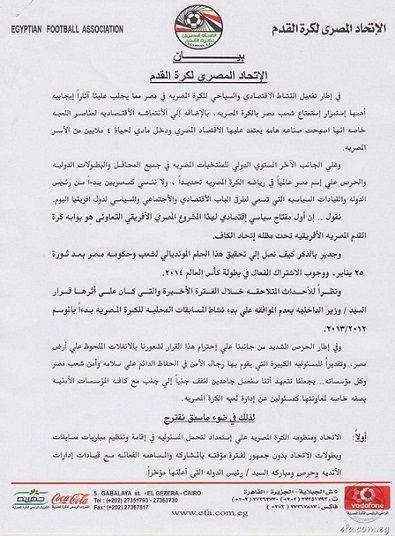 EGYPTIAN FOOTBALL ASSOCIATION
الإتحاد المصرى لكرة القدم
بيان
الإتحاد المصرى لكرة القدم
في إطار تفعيل النشاط الاقتصادي والسياحي للكرة المصريه في مصر مما يجلب علينا آثاراً إيجابيه
أهمها إستمرار إستمتاع شعب مصر بالكرة المصريه، بالإضافه إلي الأنتعاشه الأقتصاديه لعناصر اللعبه
خاصه انها اصبحت صناعه هامه يعتمد عليها الاقتصاد المصري ودخل مادي لحياة ٤ ملايين من الأسر
المصريه.
وعلي الجانب الآخر المستوي الدولي للمنتخبات المصريه في جميع المحافل والبطولات الدوليه
والحرص علي إسم مصر عالمياً في رياضه الكرة المصريه تحديداً، ولا ننسي كمصريين بدءاً من رئيس
الدوله والقيادات السياسيه التي تسعي لطرق الباب الأقتصادي والأجتماعي والسياسي لدول افريقيا اليوم.
نقول .. إن أول مفتاح سياسي إقتصادي لهذا المشروع المصري الأفريقي التعاوني هو بوابه كرة
القدم المصريه الأفريقيه تحت مظله إتحاد الكاف.
وجدير بالذكر كيف نصل إلي تحقيق هذا الحلم المونديالي لشعب وحكومه مصر بعد ثورة
٢٥ يناير، ووجوب الاشتراك الفعال في بطولة كأس العالم ٢٠١٤.
ونظراً للأحداث المتلاحقه خلال الفترة الأخيرة والتى كان على أثرها قرار
السيد / وزير الداخليه بعدم الموافقه علي بدء نشاط المسابقات المحليه للكرة المصريه بدءاً بالموسم
٢٠١٣/٢٠١٢.
وفي إطار الحرص الشديد من جانبنا علي إحترام هذا القرار لشعورنا بالانفلات الملحوظ علي أرض
مصر، وتقديراً للمسئوليه الكبيرة التي يقوم بها رجال الأمن في الحفاظ الدائم علي سلامه وأمن شعب مصر
وكل مؤسساته .. يجعلنا نتعهد أننا سنعمل جاهدين لنقف جنباً إلي جنب مع كافه المؤسسات الأمنيه
بصفه خاصه لمعاونتها كمسئولين عن إدارة لعبه الكرة المصريه.
لذلك في ضوء ماسبق نقترح
أولاً: الاتحاد ومنظومه الكرة المصريه علي إستعداد لتحمل المسئوليه في إقامة وتنظيم مباريات مسابقات
وبطولات الاتحاد بدون جمهور لفترة مؤقته بالمشاركه والمساهمه الفعاله مع قيادات إدارات
الأنديه وحرص ومباركه السيد / رئيس الدوله التي أعلنها مؤخراً.
جهينه
Coca-Cola
5 GABALAYA st. - EL GEZERA - CAIRO
Tel: (+202) 27351793 - 27363730
Fax: (+202) 27367817
www.efa.com.eg
٥ ش الجبلاية - الجزيرة - القاهرة
vodafone
efa.com.eg